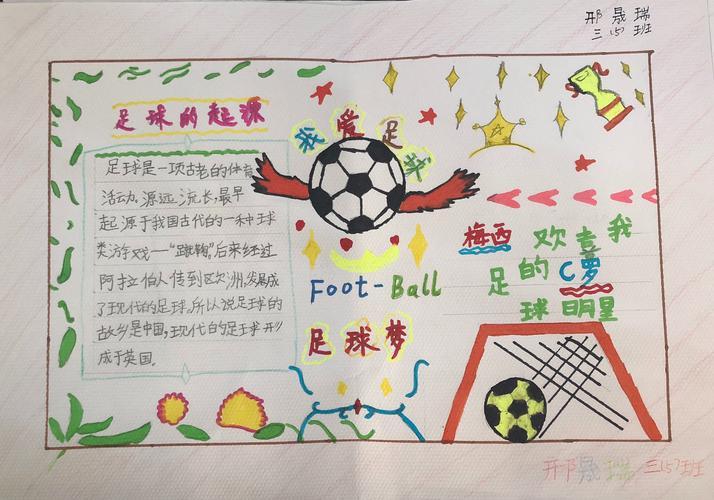 邢晟瑞
三(5)班
足球的起源
足球是一项古老的体育
活动,源远流长,最早
起源于我国古代的一种球
类游戏——“蹴鞠”后来经过
阿拉伯人传到欧洲,发展成
了现代的足球。所以说足球的
故乡是中国,现代的足球形
成于英国。
我爱足球
Foot-Ball
足球梦
我喜欢梅西
C罗的足
球明星
邢晟瑞 三(5)班